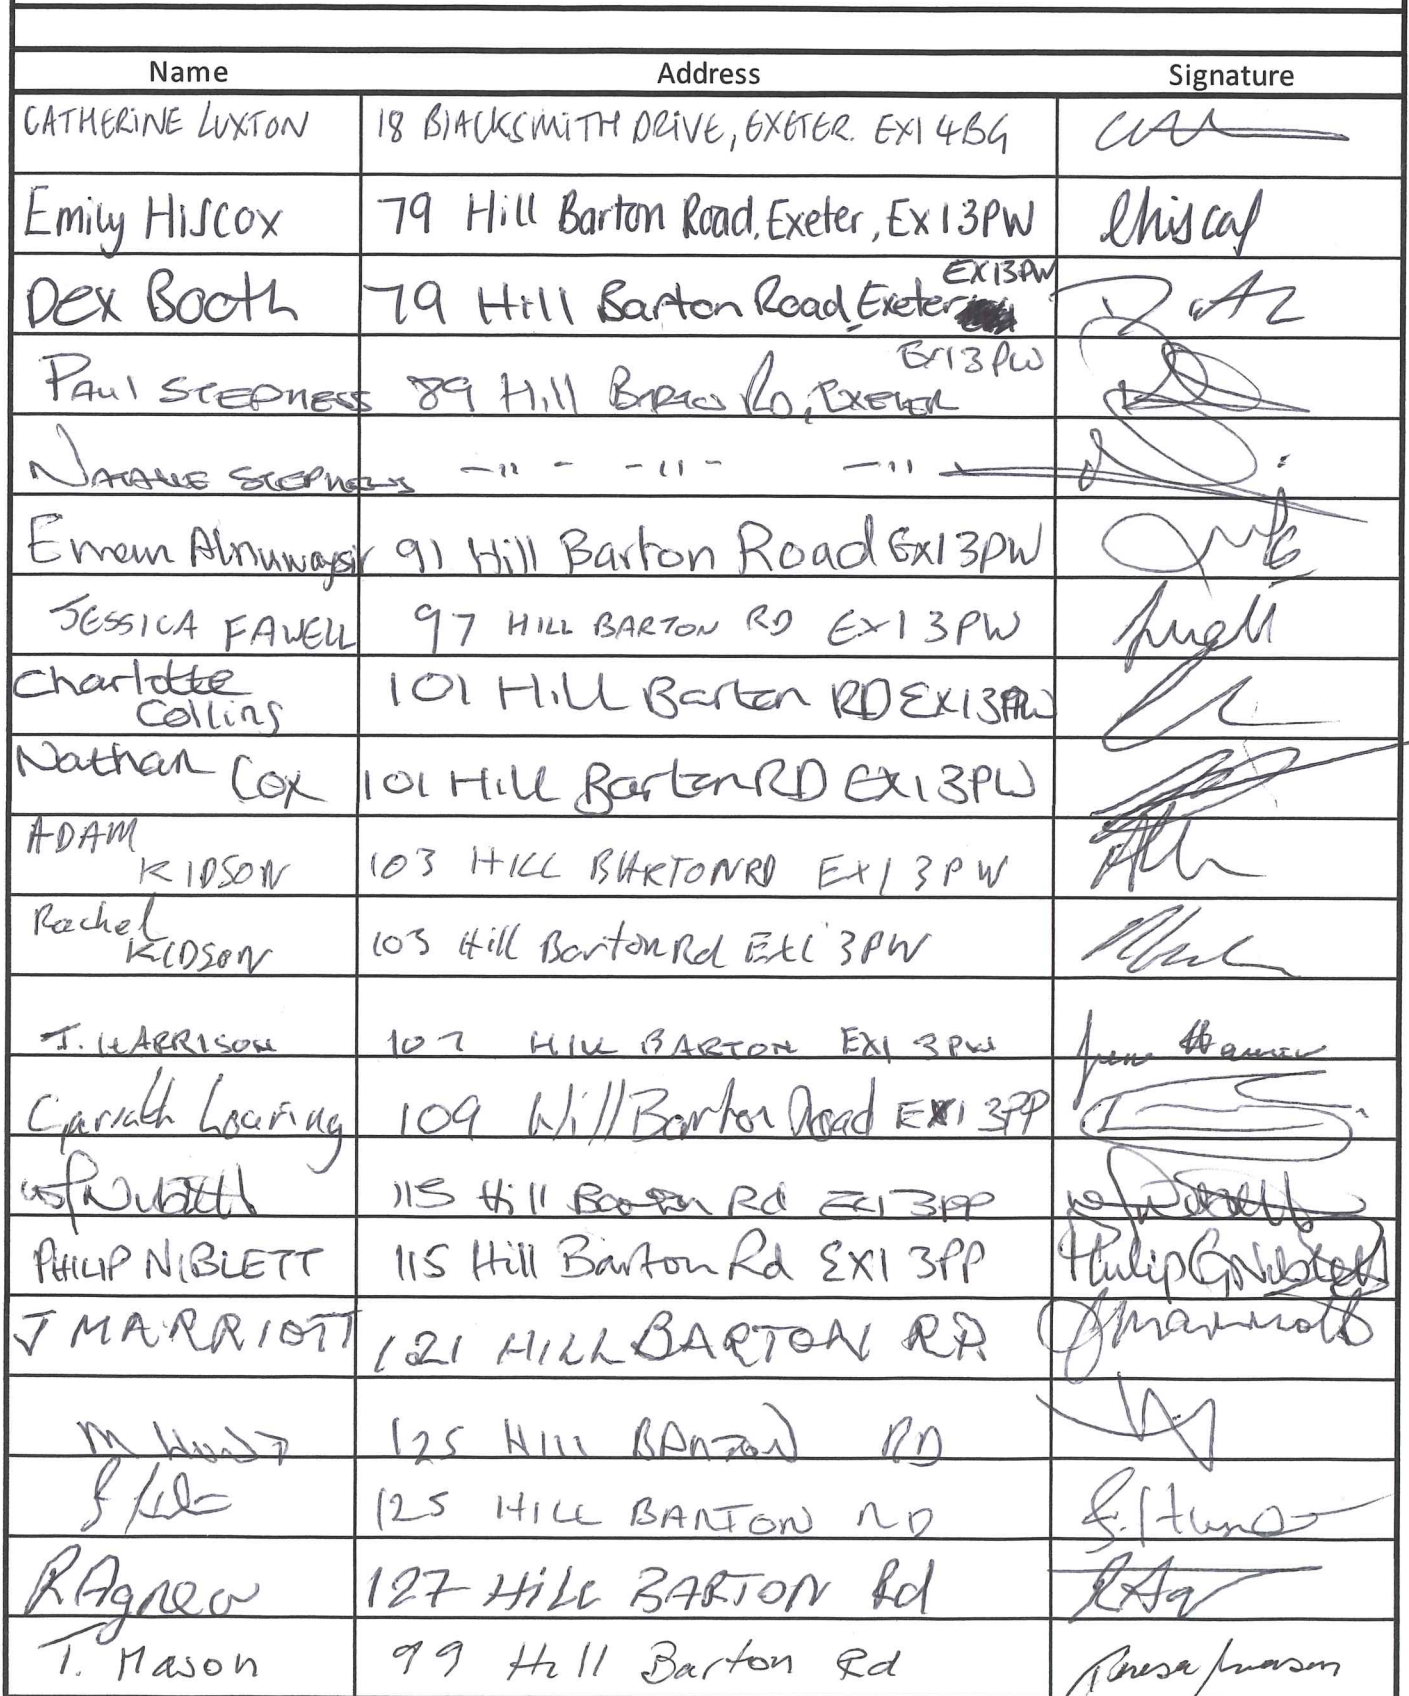 Name Address Signature
CATHERINE LUXTON 18 BLACKSMITH DRIVE, EXETER. EX1 4BG
Emily Hiscox 79 Hill Barton Road, Exeter, Ex1 3PW Ehiscox
EX13PW
Dex Booth 79 Hill Barton Road, Exeter
EX13PW
PAUL STEPHENS 89 Hill BARTON RD, EXETER
NATALIE STEPHENS -"- -"- -"
Emem Alnuwaysir 91 Hill Barton Road Ex1 3PW
JESSICA FAWELL 97 HILL BARTON RD EX1 3PW
Charlotte
Collins 101 Hill Barton RD EX13PW
Nathan
Cox 101 Hill Barton RD EX13PW
ADAM
KIDSON 103 HILL BARTON RD EX1 3PW
Rachel
KIDSON 103 Hill Barton Rd EX1 3PW
J. HARRISON 107 HILL BARTON EX1 3PW
Gareth Loaring 109 Hill Barton Road EX1 3PP
115 Hill Barton Rd EX1 3PP
PHILIP NIBLETT 115 Hill Barton Rd EX1 3PP Philip G Niblett
J MARRIOTT 121 HILL BARTON RD J Marriott
M 125 HILL BARTON RD
125 HILL BARTON RD
R Agnew 127 HILL BARTON Rd R Ag
T. Mason 99 Hill Barton Rd Teresa Mason